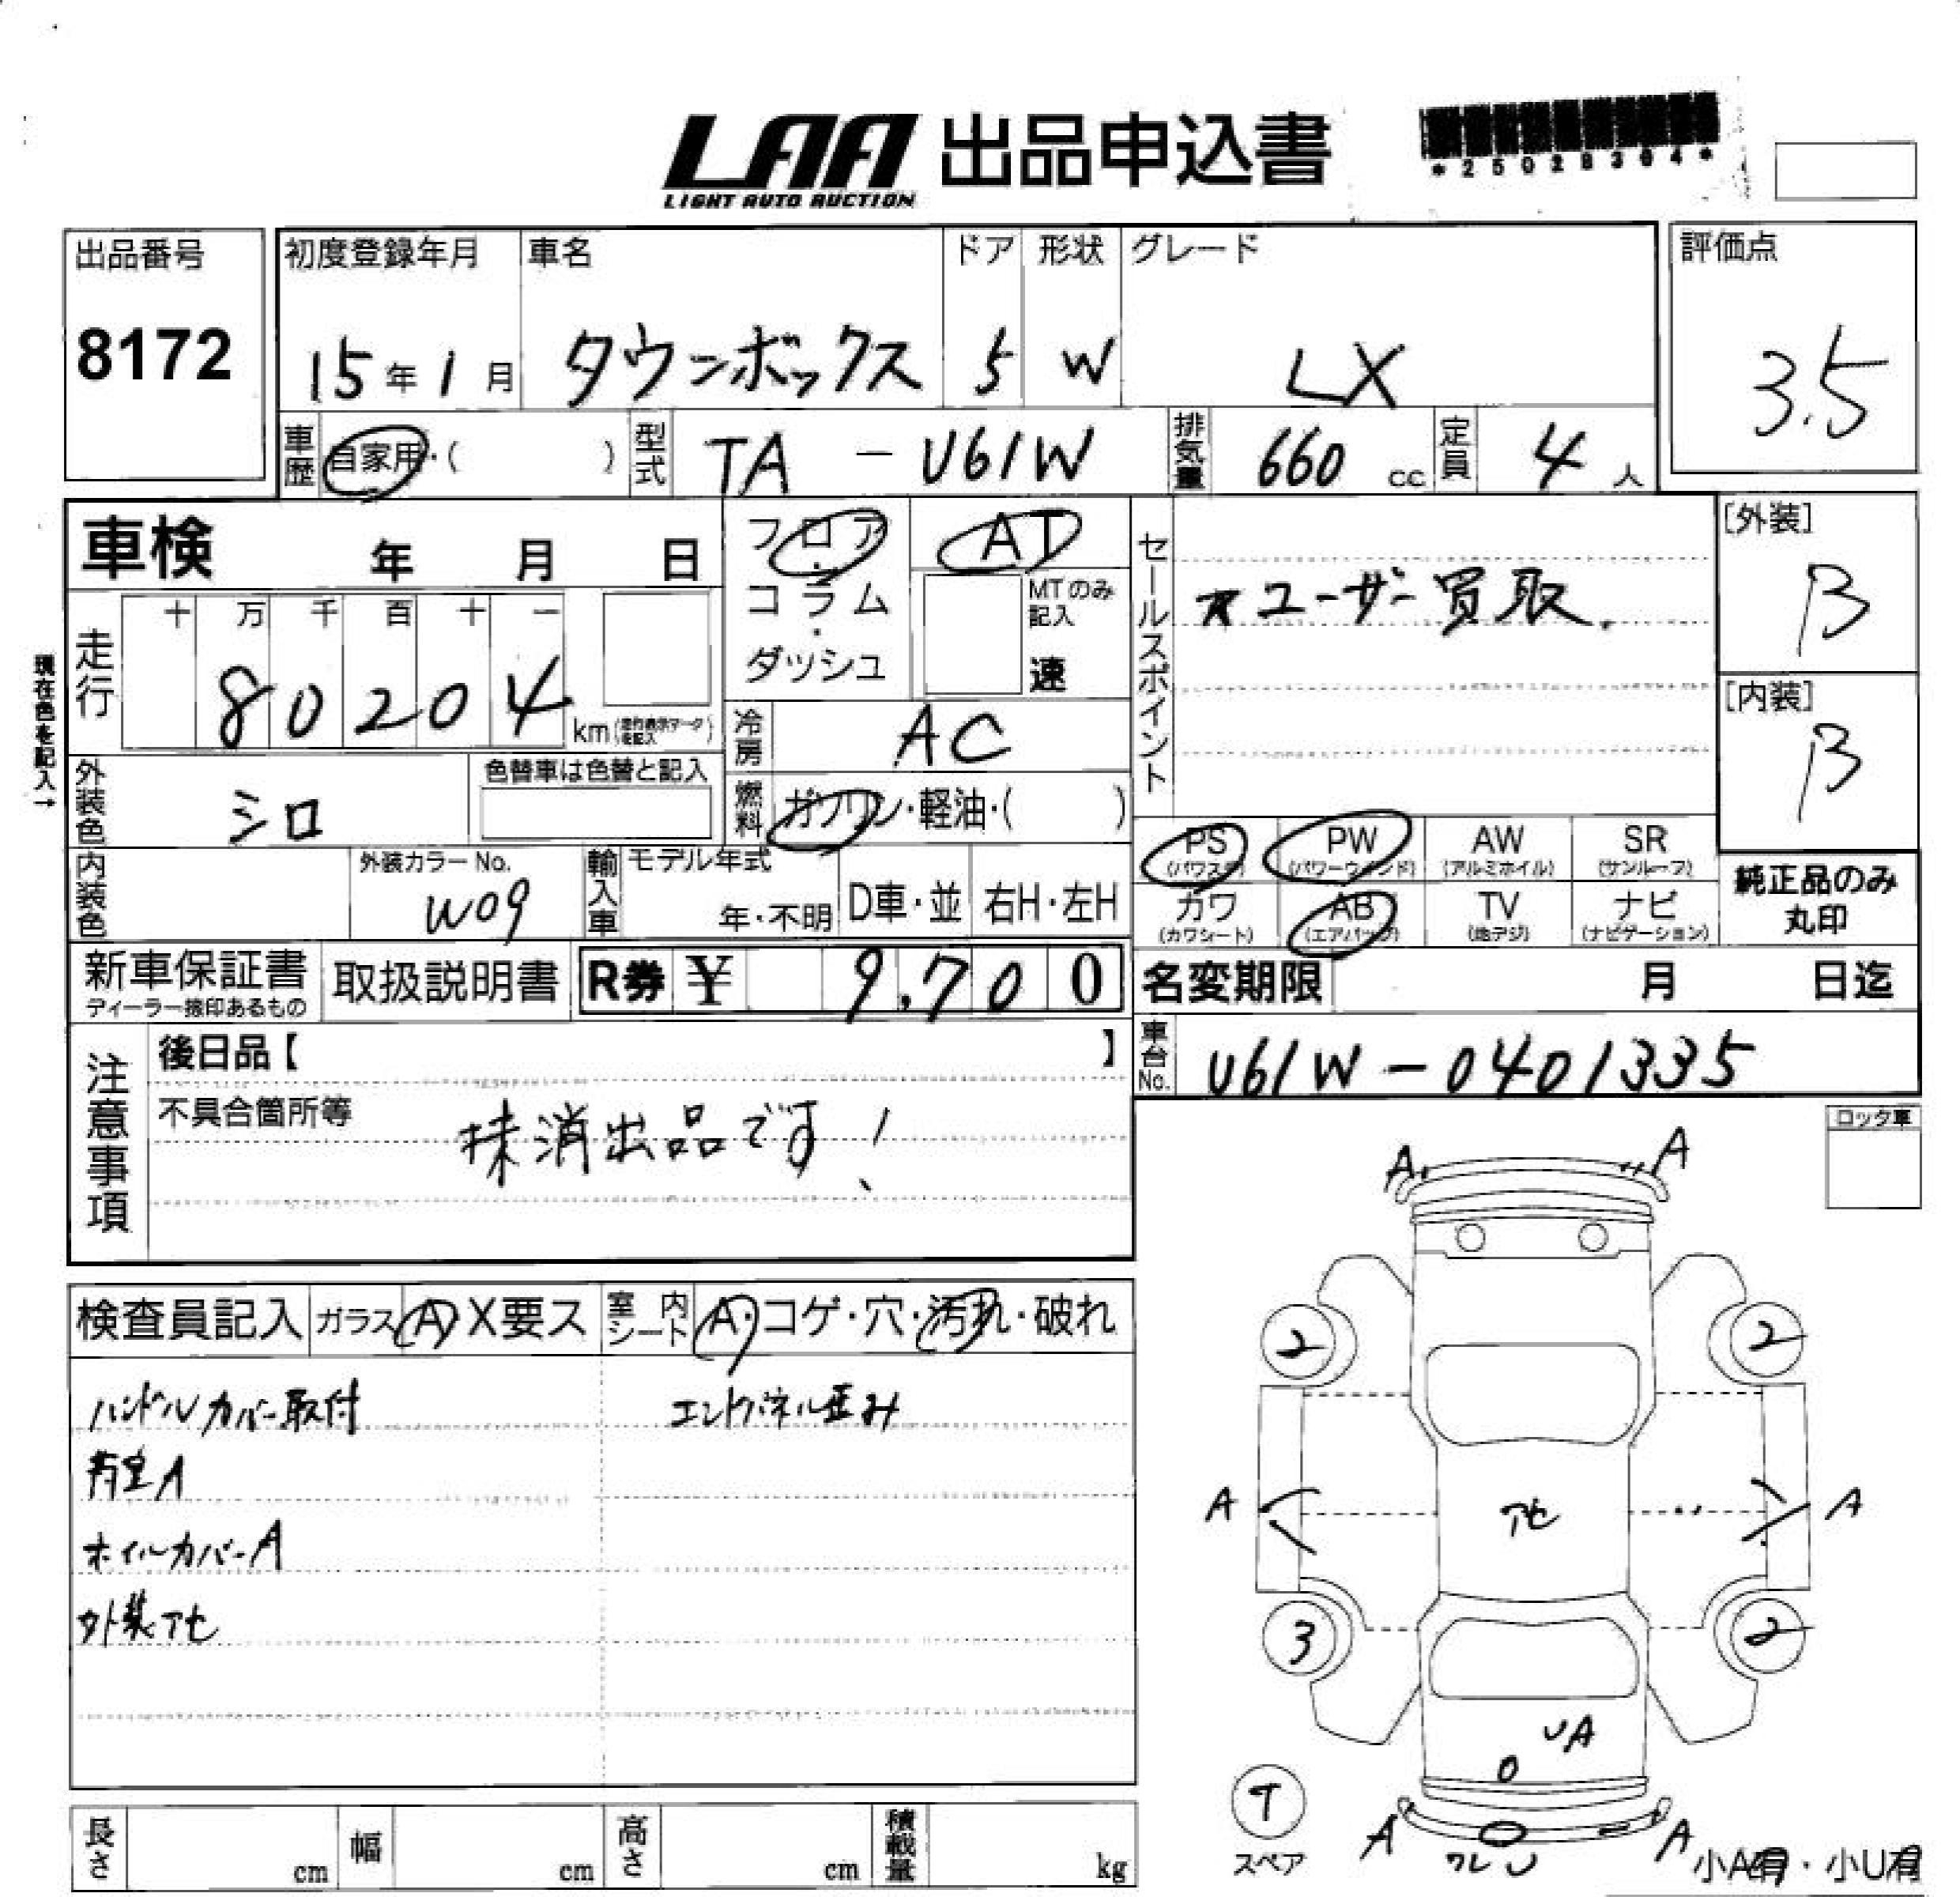 LAA 出品申込書
LIGHT AUTO AUCTION
*25028304*
出品番号
8172
初度登録年月 車名 ドア 形状 グレード
15年1月 タウンボックス 5 W LX
評価点
3.5
車歴 自家用・( ) 型式 TA-U61W 排気量 660 cc 定員 4 人
車検 年 月 日
フロア・コラム・ダッシュ
AT
MTのみ記入
速
セールスポイント
★ユーザー買取.
[外装]
B
[内装]
B
現在色を記入→
走行 十 万 千 百 十 一
80204 km
冷房 AC
外装色 シロ
色替車は色替と記入
燃料 ガソリン・軽油・( )
PS (パワステ) PW (パワーウインド) AW (アルミホイル) SR (サンルーフ)
カワ (カワシート) AB (エアバッグ) TV (地デジ) ナビ (ナビゲーション)
純正品のみ丸印
内装色 外装カラーNo. W09
輸入車 モデル年式 年・不明 D車・並 右H・左H
新車保証書 ディーラー捺印あるもの
取扱説明書
R券 ¥ 9,700
名変期限 月 日迄
車台No. U61W-0401335
注意事項
後日品【 】
不具合箇所等
抹消出品です!
ロック車
検査員記入 ガラス A・X要ス 室内シート A・コゲ・穴・汚れ・破れ
ハンドルカバー取付 エンドパネル歪み
荷室A
ホイルカバーA
外装アセ
A A
2 2
A アセ A
3 2
UA
O
T
スペア
A ワレU A
小A有・小U有
長さ cm 幅 cm 高さ cm 積載量 kg